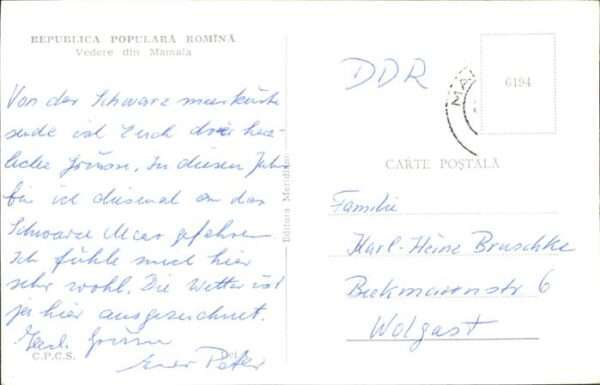 REPUBLICA POPULARĂ ROMÎNĂ
Vedere din Mamaia
Von der Schwarzmeerküste
sende ich Euch drei herz-
liche Grüsse. In diesen Jahr
bin ich diesmal an das
Schwarze Meer gefahren
Ich fühle mich hier
sehr wohl. Die Wetter ist
ja hier ausgezeichnet.
Herzl. Grüsse
Euer Peter
C.P.C.S.
Editura Meridiane
DDR
MA
6194
CARTE POȘTALĂ
Familie
Karl-Heinz Bruschke
6
Wolgast